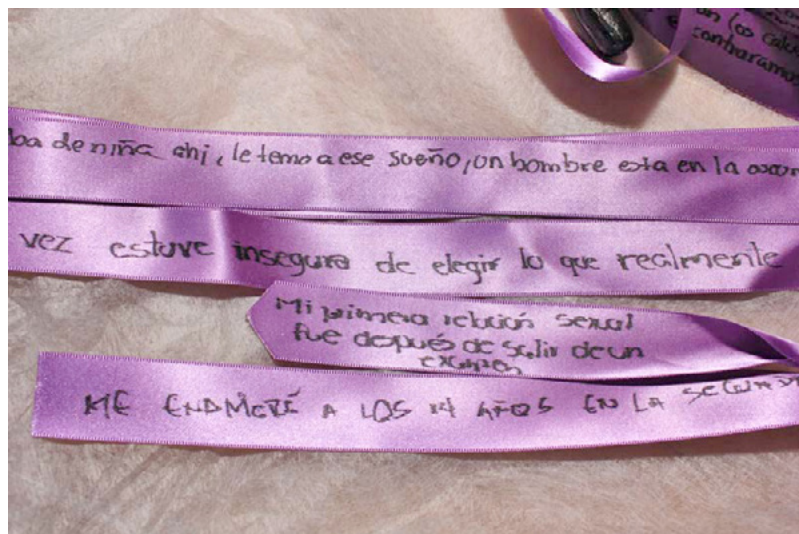 en los
contraramos
ba de niña ahi, le temo a ese sueño, un hombre esta en la
vez estuve insegura de elegir lo que realmente
Mi primera relación sexual
fue después de salir de un
examen
ME ENAMORÉ A LOS 14 AÑOS EN LA